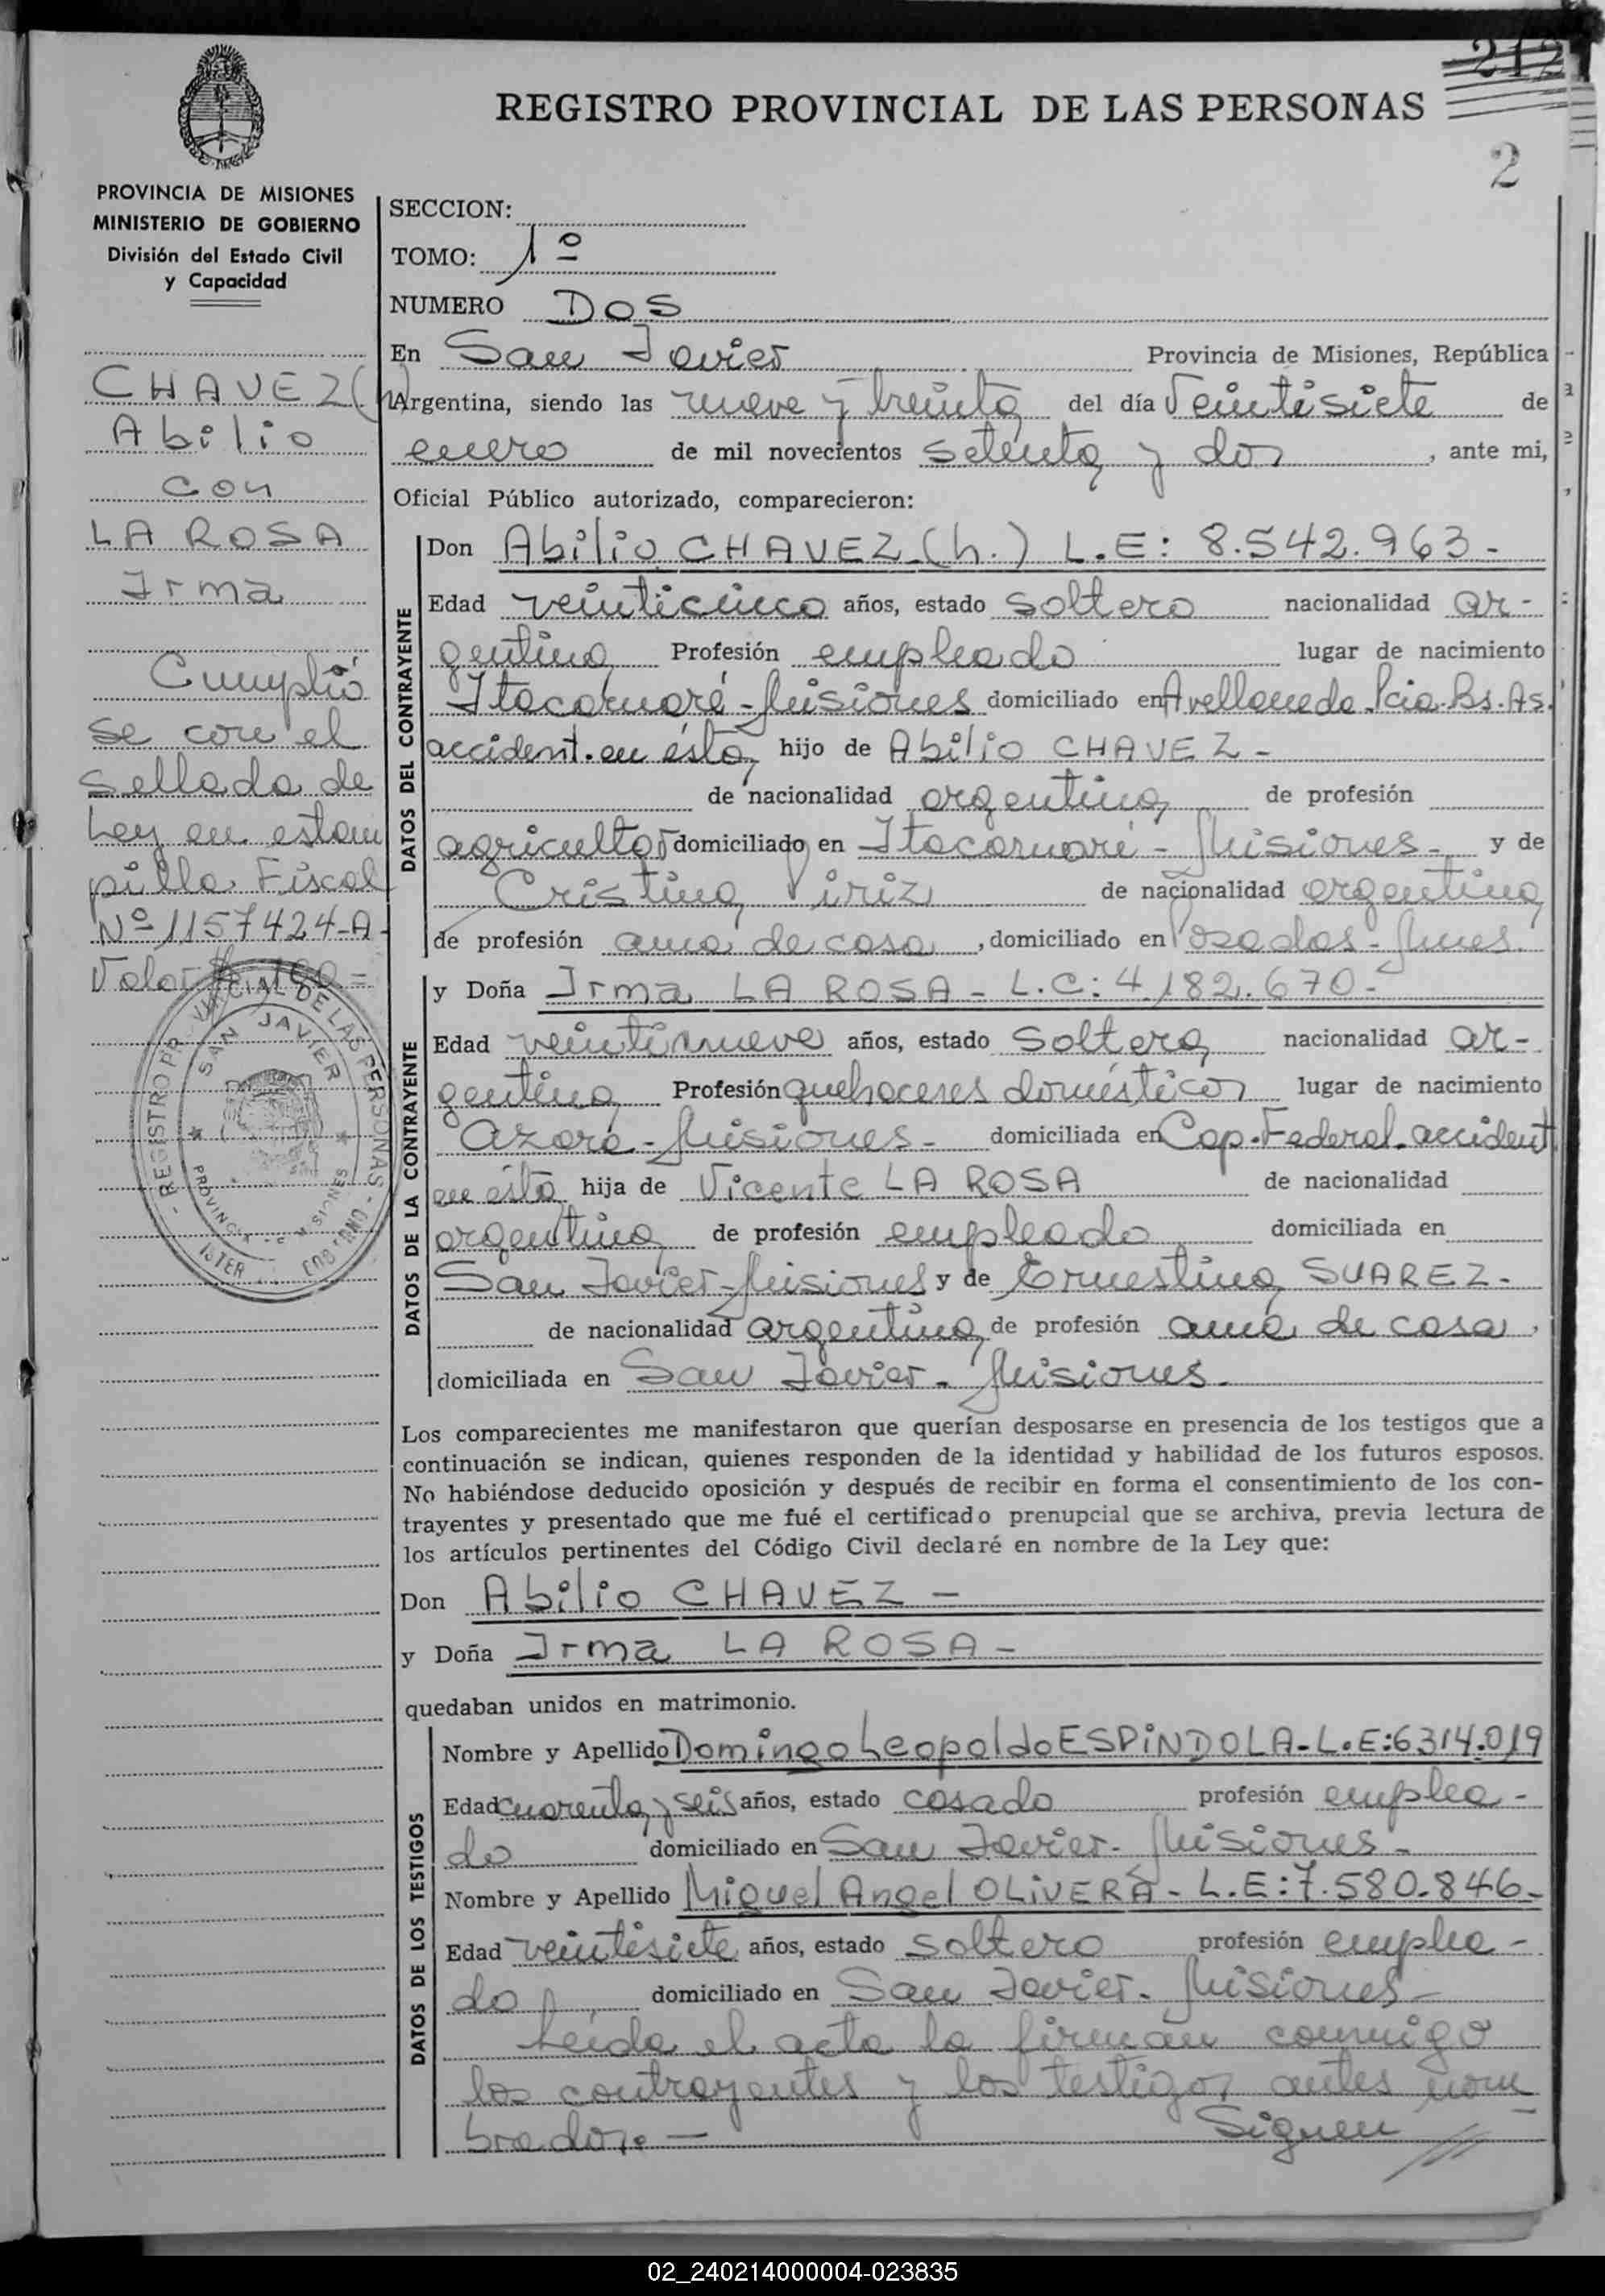 212
REGISTRO PROVINCIAL DE LAS PERSONAS
2
PROVINCIA DE MISIONES
MINISTERIO DE GOBIERNO
División del Estado Civil
y Capacidad
CHAVEZ (h)
Abilio
con
LA ROSA
Irma
Cumplió
se con el
sellado de
Ley en estam
pilla Fiscal
Nº 1157424-A-
Valor $ 100=
REGISTRO PROVINCIAL DE LAS PERSONAS
SAN JAVIER
PROVINCIA MISIONES
SECCION:
TOMO: 1º
NUMERO DOS
En San Javier Provincia de Misiones, República
Argentina, siendo las nueve y treinta del día Veintisiete de
enero de mil novecientos setenta y dos, ante mi,
Oficial Público autorizado, comparecieron:
DATOS DEL CONTRAYENTE
Don Abilio CHAVEZ (h.) L.E: 8.542.963-
Edad veinticinco años, estado soltero nacionalidad ar-
gentina Profesión empleado lugar de nacimiento
Itacaruaré-Misiones domiciliado en Avellaneda Pcia. Bs. As.
accident. en ésta, hijo de Abilio CHAVEZ-
de nacionalidad argentina de profesión
agricultor domiciliado en Itacaruaré-Misiones- y de
Cristina Piriz de nacionalidad argentina
de profesión ama de casa, domiciliado en Posadas-Mnes.
DATOS DE LA CONTRAYENTE
y Doña Irma LA ROSA- L.C: 4.182.670-
Edad veintinueve años, estado soltera nacionalidad ar-
gentina Profesión quehaceres domésticos lugar de nacimiento
Azara-Misiones- domiciliada en Cap. Federal. accident
en ésta hija de Vicente LA ROSA de nacionalidad
argentina de profesión empleado domiciliada en
San Javier-Misiones y de Ernestina SUAREZ-
de nacionalidad argentina, de profesión ama de casa,
domiciliada en San Javier-Misiones-
Los comparecientes me manifestaron que querían desposarse en presencia de los testigos que a
continuación se indican, quienes responden de la identidad y habilidad de los futuros esposos.
No habiéndose deducido oposición y después de recibir en forma el consentimiento de los con-
trayentes y presentado que me fué el certificado prenupcial que se archiva, previa lectura de
los artículos pertinentes del Código Civil declaré en nombre de la Ley que:
Don Abilio CHAVEZ-
y Doña Irma LA ROSA-
quedaban unidos en matrimonio.
DATOS DE LOS TESTIGOS
Nombre y Apellido Domingo Leopoldo ESPINDOLA-L.E:6314.019
Edad cuarenta y seis años, estado casado profesión emplea-
do domiciliado en San Javier-Misiones-
Nombre y Apellido Miguel Angel OLIVERA-L.E:7.580.846-
Edad veintisiete años, estado soltero profesión emplea-
do domiciliado en San Javier-Misiones-
Leída el acta la firman conmigo
los contrayentes y los testigos antes nom
brados.- Siguen //
02_240214000004-023835